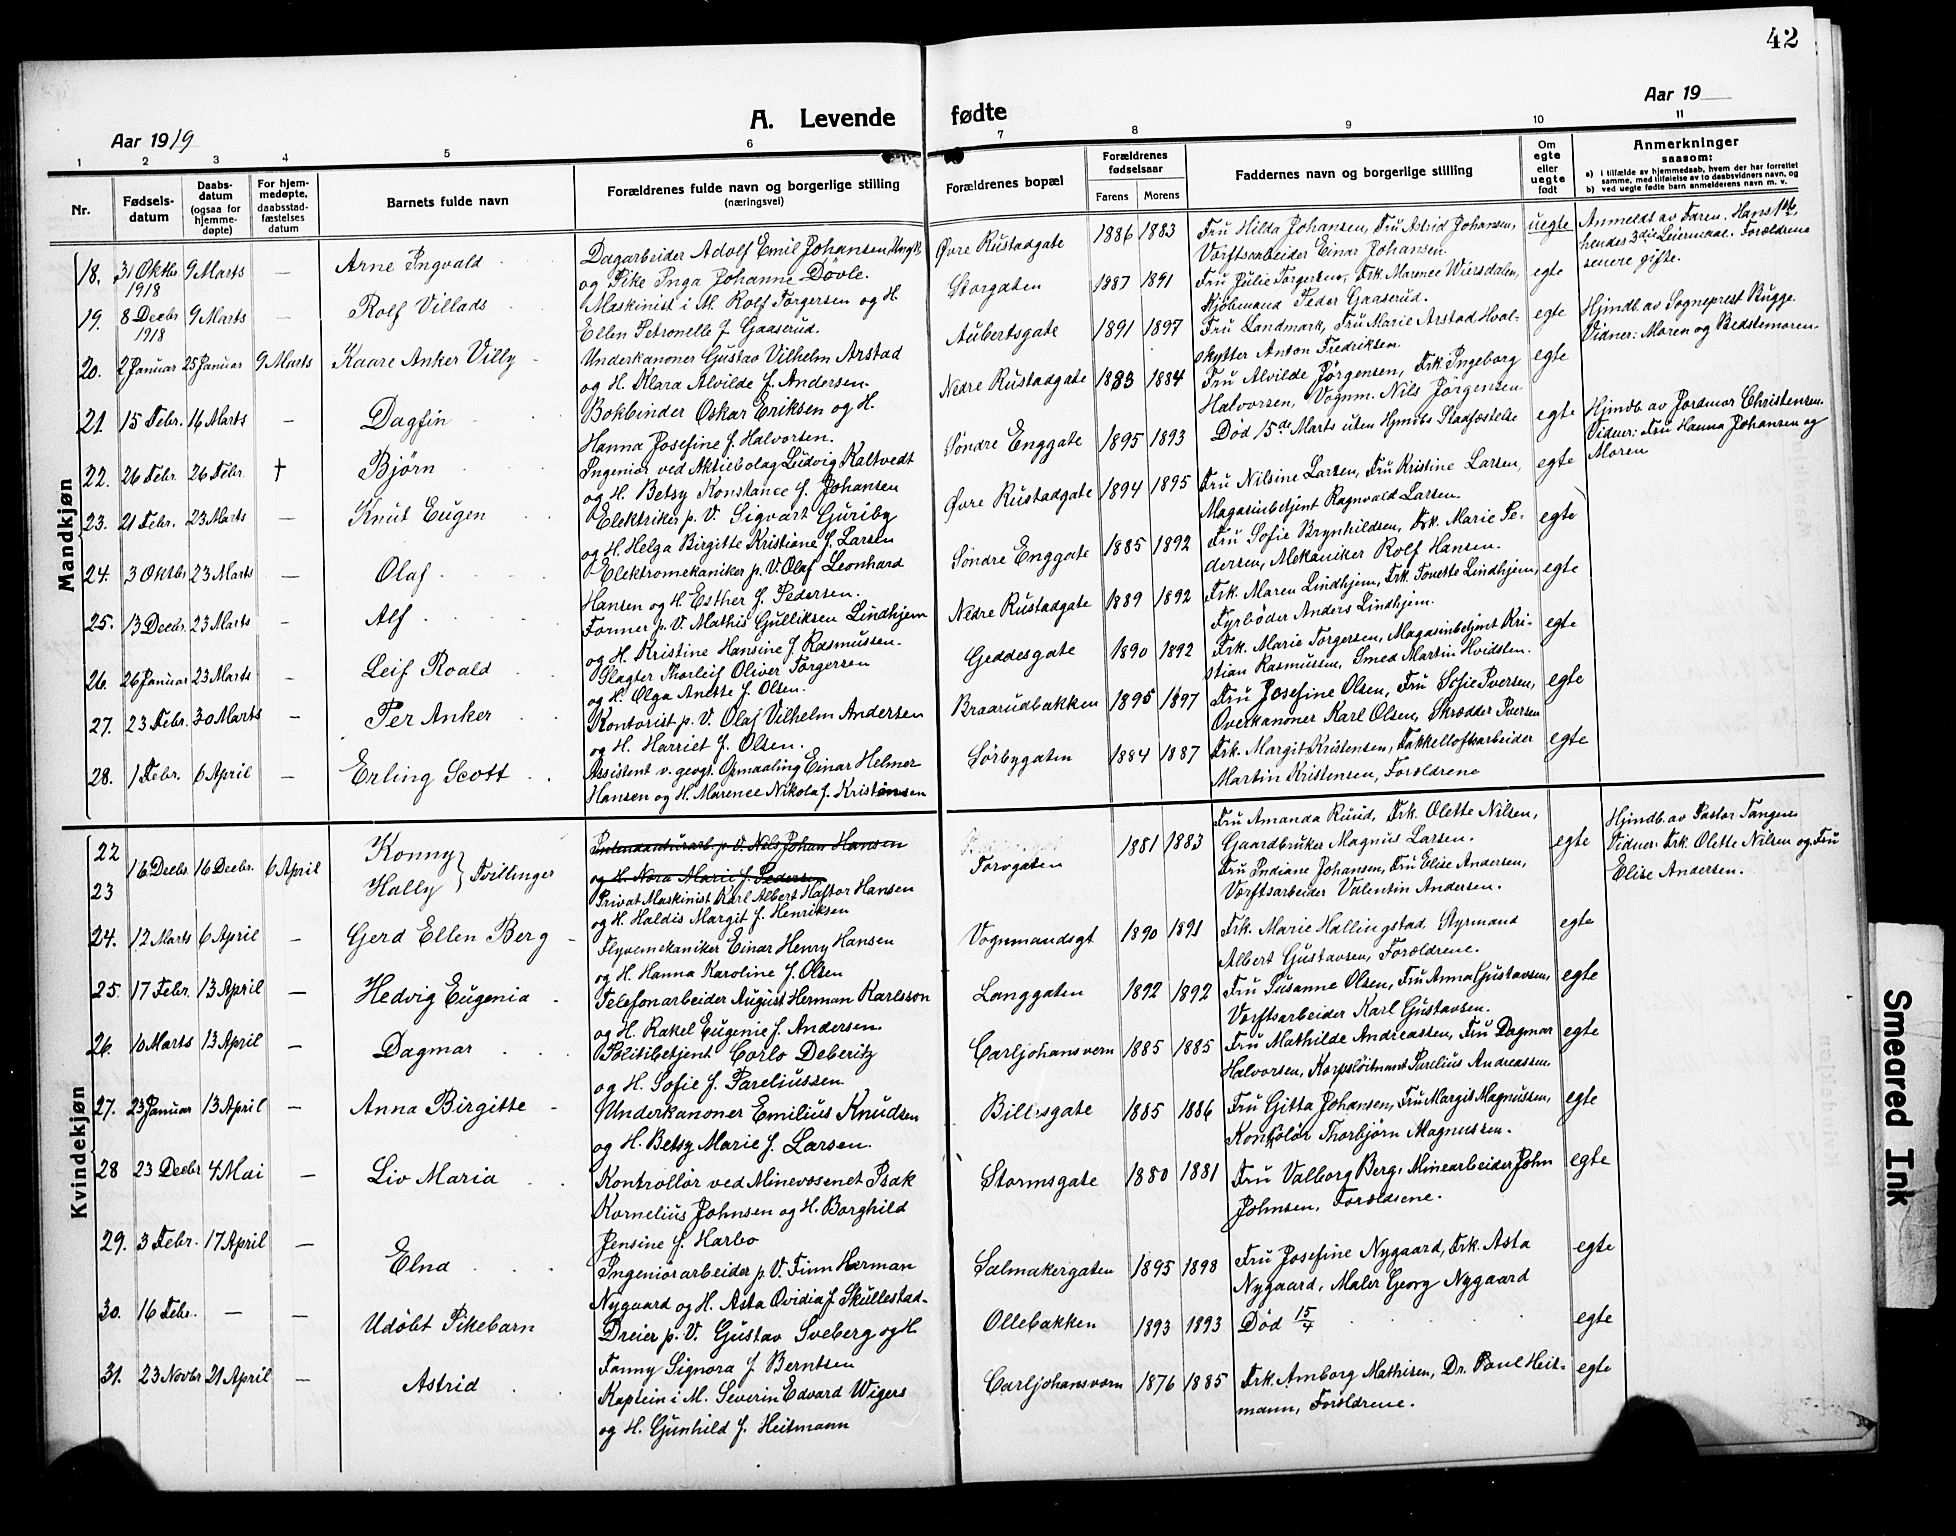 42
Aar 1919
A. Levende fødte
Aar 19
1 2 3 4 5 6 7 8 9 10 11
Nr.
Fødsels-
datum
Daabs-
datum
(ogsaa for
hjemme-
døpte)
For hjem-
medøpte,
daabsstad-
fæstelses
datum
Barnets fulde navn
Forældrenes fulde navn og borgerlige stilling
(næringsvei)
Forældrenes bopæl
Forældrenes
fødselsaar
Farens Morens
Faddernes navn og borgerlige stilling
Om
egte
eller
uegte
født
Anmerkninger
saasom:
a) i tilfælde av hjemmedaab, hvem der har forrettet
samme, med tilføielse av to daabsvidners navn, og
b) ved uegte fødte barn anmelderens navn m. v.
Mandkjøn
18. 31 Oktbr 1918 9 Marts — Arne Ingvald
Dagarbeider Adolf Emil Johansen, Ungk.
og Pike Inga Johanne Dövle.
Øvre Rustadgate 1886 1883
Fru Hilda Johansen, Fru Astrid Johansen,
Værftsarbeider Einar Johansen.
uegte
Anmeldt av Faren. Hans 1ste,
hendes 3die Leiermaal. Forældrene
senere gifte.
19. 8 Decbr 1918 9 Marts — Rolf Villads
Maskinist i M. Rolf Torgersen og H.
Ellen Petronelle f. Gaaserud.
Storgaten 1887 1891
Fru Julie Torgersen, Frk. Marence Wiersdalen,
Kjøbmand Peder Gaaserud.
egte
20. 2 Januar 25 Januar 9 Marts Kaare Anker Villy
Underkanoner Gustav Vilhelm Arstad
og H. Klara Alvilde f. Andersen.
Aubertsgate 1891 1897
Fru Landmark, Fru Marie Arstad, Hval-
skytter Anton Fredriksen.
egte
Hjmdb. av Sogneprest Bugge
Vidner: Moren og Bedstemoren.
21. 15 Febr. 16 Marts — Dagfin
Bokbinder Oskar Eriksen og H.
Hanna Josefine f. Halvorsen.
Nedre Rustadgate 1883 1884
Fru Alvilde Jörgensen, Frk. Ingeborg
Halvorsen, Vognm. Nils Jörgensen
egte
22. 26 Febr. 26 Febr. † Bjørn
Ingeniör ved Aktiebolag Ludvig Kaltvedt
og H. Betsy Konstance f. Johansen
Söndre Enggate 1895 1893
Död 15de Marts uten Hjmdbs Stadfæstelse
egte
Hjmdb. av Jordmor Christensen.
Vidner: Fru Hanna Johansen og
Moren
23. 21 Febr. 23 Marts — Knut Eugen
Elektriker p. V. Sigvart Guriby
og H. Helga Birgitte Kristiane f. Larsen
Øvre Rustadgate 1894 1895
Fru Nilsine Larsen, Fru Kristine Larsen,
Magasinbetjent Ragnvald Larsen.
egte
24. 3 Oktbr 23 Marts — Olaf
Elektromekaniker p. V. Olaf Leonhard
Hansen og H. Esther f. Pedersen.
Söndre Enggate 1885 1892
Fru Sofie Brynhildsen, Frk. Marie Pe-
dersen, Mekaniker Rolf Hansen.
egte
25. 13 Decbr. 23 Marts — Alf
Former p. V. Mathis Gulliksen Lindhjem
og H. Kristine Hansine f. Rasmussen.
Nedre Rustadgate 1889 1892
Frk. Maren Lindhjem, Frk. Tovette Lindhjem,
Fyrbøder Anders Lindhjem.
egte
26. 26 Januar 23 Marts — Leif Roald
Slagter Thorleif Oliver Torgersen
og H. Olga Anette f. Olsen.
Geddesgate 1890 1892
Frk. Marie Torgersen, Magasinbetjent Kri-
stian Rasmussen, Smed Martin Hvidsten.
egte
27. 23 Febr. 30 Marts — Per Anker
Kontorist p. V. Olaf Vilhelm Andersen
og H. Harriet f. Olsen.
Braarudbakken 1895 1897
Fru Josefine Olsen, Fru Sofie Iversen,
Overkanoner Karl Olsen, Skrædder Iversen
egte
28. 1 Febr. 6 April — Erling Scott
Assistent v. geogr. Opmaaling Einar Helmer
Hansen og H. Marence Nikola f. Kristensen
Sörbygaten 1884 1887
Frk. Margit Kristensen, Takkelloftsarbeider
Martin Kristensen, Forældrene
egte
Kvindekjøn
22
23 16 Decbr. 16 Decbr. 6 April Konny
Hally } Tvillinger
Intendanturarb. p. V. Nils Johan Hansen
og H. Nora Marie f. Pedersen
Privat Maskinist Karl Albert Haftor Hansen
og H. Haldis Margit f. Henriksen
Torvgaten 1881 1883
Fru Amanda Ruud, Frk. Olette Nilsen,
Gaardbruker Magnus Larsen.
Fru Indiane Johansen, Fru Elise Andersen,
Værftsarbeider Valentin Andersen.
egte
Hjmdb. av Pastor Tangen.
Vidner: Frk. Olette Nilsen og Fru
Elise Andersen.
24. 12 Marts 6 April — Gerd Ellen Berg
Flyvemekaniker Einar Henry Hansen
og H. Hanna Karoline f. Olsen
Vognmandsgt 1890 1891
Frk. Marie Hallingstad, Styrmand
Albert Gustavsen, Forældrene.
egte
25. 17 Febr. 13 April — Hedvig Eugenia
Telefonarbeider August Herman Karlsson
og H. Rakel Eugenie f. Andersen
Langgaten 1892 1892
Fru Susanne Olsen, Fru Anna Gustavsen,
Værftsarbeider Karl Gustavsen.
egte
26. 10 Marts 13 April — Dagmar
Politibetjent Carlo Deberitz
og H. Sofie f. Pareliussen
Carljohansvern 1885 1885
Fru Mathilde Andreassen, Fru Dagmar
Halvorsen, Korpslöitnant Parelius Andreassen.
egte
27. 23 Januar 13 April — Anna Birgitte
Underkanoner Emilius Knudsen
og H. Betsy Marie f. Larsen.
Billesgate 1885 1886
Fru Gitta Johansen, Fru Margit Magnussen,
Kontrolör Thorbjörn Magnussen.
egte
28 23 Decbr 4 Mai — Liv Maria
Kontrollör ved Minevæsenet Isak
Kornelius Johnsen og H. Borghild
Jensine f. Harbo
Stormsgate 1880 1881
Fru Valborg Berg, Minearbeider John
Johnsen, Forældrene.
egte
29. 3 Febr. 17 April — Elna
Ingeniörarbeider p. V. Finn Herman
Nygaard og H. Asta Ovidia f. Skullestad.
Salmakergaten 1895 1898
Fru Josefine Nygaard, Frk. Asta
Nygaard, Maler Georg Nygaard
egte
30. 16 Febr. — — Udöbt Pikebarn
Dreier p. V. Gustav Sveberg og H.
Fanny Signora f. Berntsen
Ollebakken 1893 1893
Död 15/4
egte
31. 23 Novbr 21 April — Astrid
Kaptein i M. Severin Edvard Wigers
og H. Gunhild f. Heitmann
Carljohansværn 1876 1885
Frk. Amborg Mathisen, Dr. Paul Heit-
mann, Forældrene.
egte
Smeared Ink